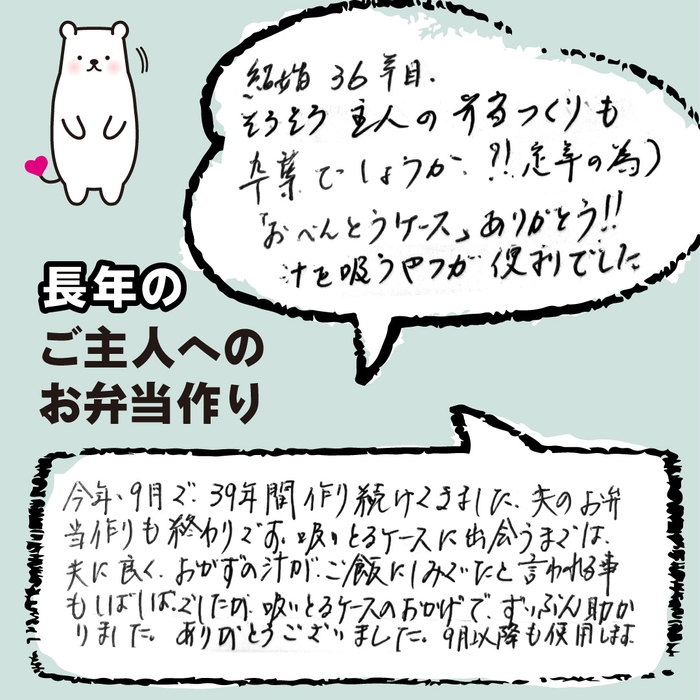 結婚 36年目。
そろそろ 主人の 弁当つくりも
卒業でしょうか、?!定年の為)
「おべんとうケース」ありがとう!!
汁を吸うやつが 便利でした
長年の
ご主人への
お弁当作り
今年、9月で、39年間作り続けてきました、夫のお弁
当作りも終わりです。吸いとるケースに出会うまでは、
夫に良く、おかずの汁が、ご飯にしみていたと言われる事
もしばしば。でしたが、吸いとるケースのおかげで、ずいぶん助か
りました。ありがとうございました。9月以降も使用します